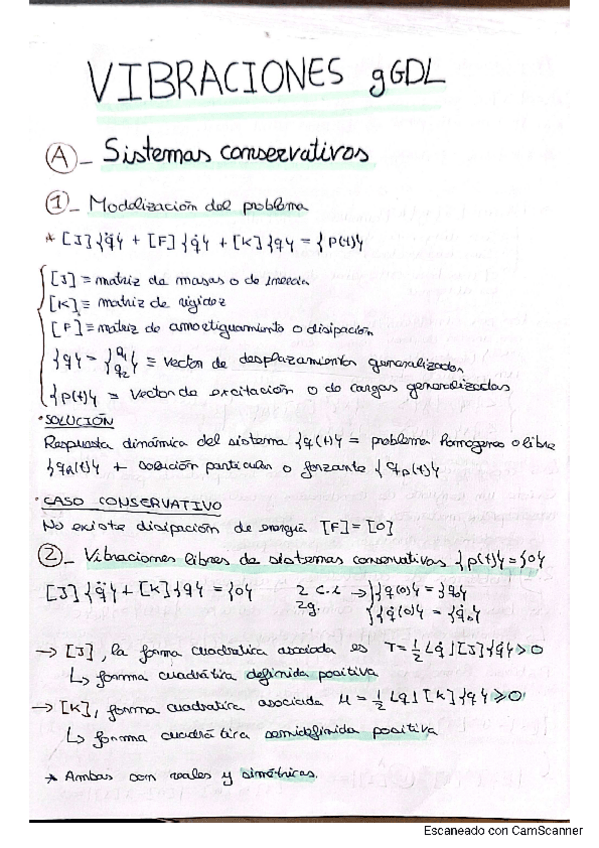 VIBRACIONES gGDL
A_ Sistemas conservativos
1_ Modelización del problema
* [J]{q̈} + [F]{q̇} + [K]{q} = {p(t)}
[J] ≡ matriz de masas o de inercia
[K] ≡ matriz de rigidez
[F] ≡ matriz de amortiguamiento o disipación
{q} = {q₁ q₂} ≡ vector de desplazamientos generalizados
{p(t)} ≡ vector de excitación o de cargas generalizadas
· SOLUCIÓN
Respuesta dinámica del sistema {q(t)} = problema homogéneo o libre
{qh(t)} + solución particular o forzante {qp(t)}
· CASO CONSERVATIVO
No existe disipación de energía [F]=[0]
2_ Vibraciones libres de sistemas conservativos {p(t)}={0}
[J]{q̈} + [K]{q} = {0} 2 C.I. → {q(0)} = {q₀}
2g. {q̇(0)} = {q̇₀}
→ [J], la forma cuadrática asociada es T = ½ ⌊q̇⌋[J]{q̇} > 0
↳ forma cuadrática definida positiva
→ [K], forma cuadrática asociada μ = ½ ⌊q⌋[K]{q} ≥ 0
↳ forma cuadrática semidefinida positiva
* Ambas son reales y simétricas.
Escaneado con CamScanner